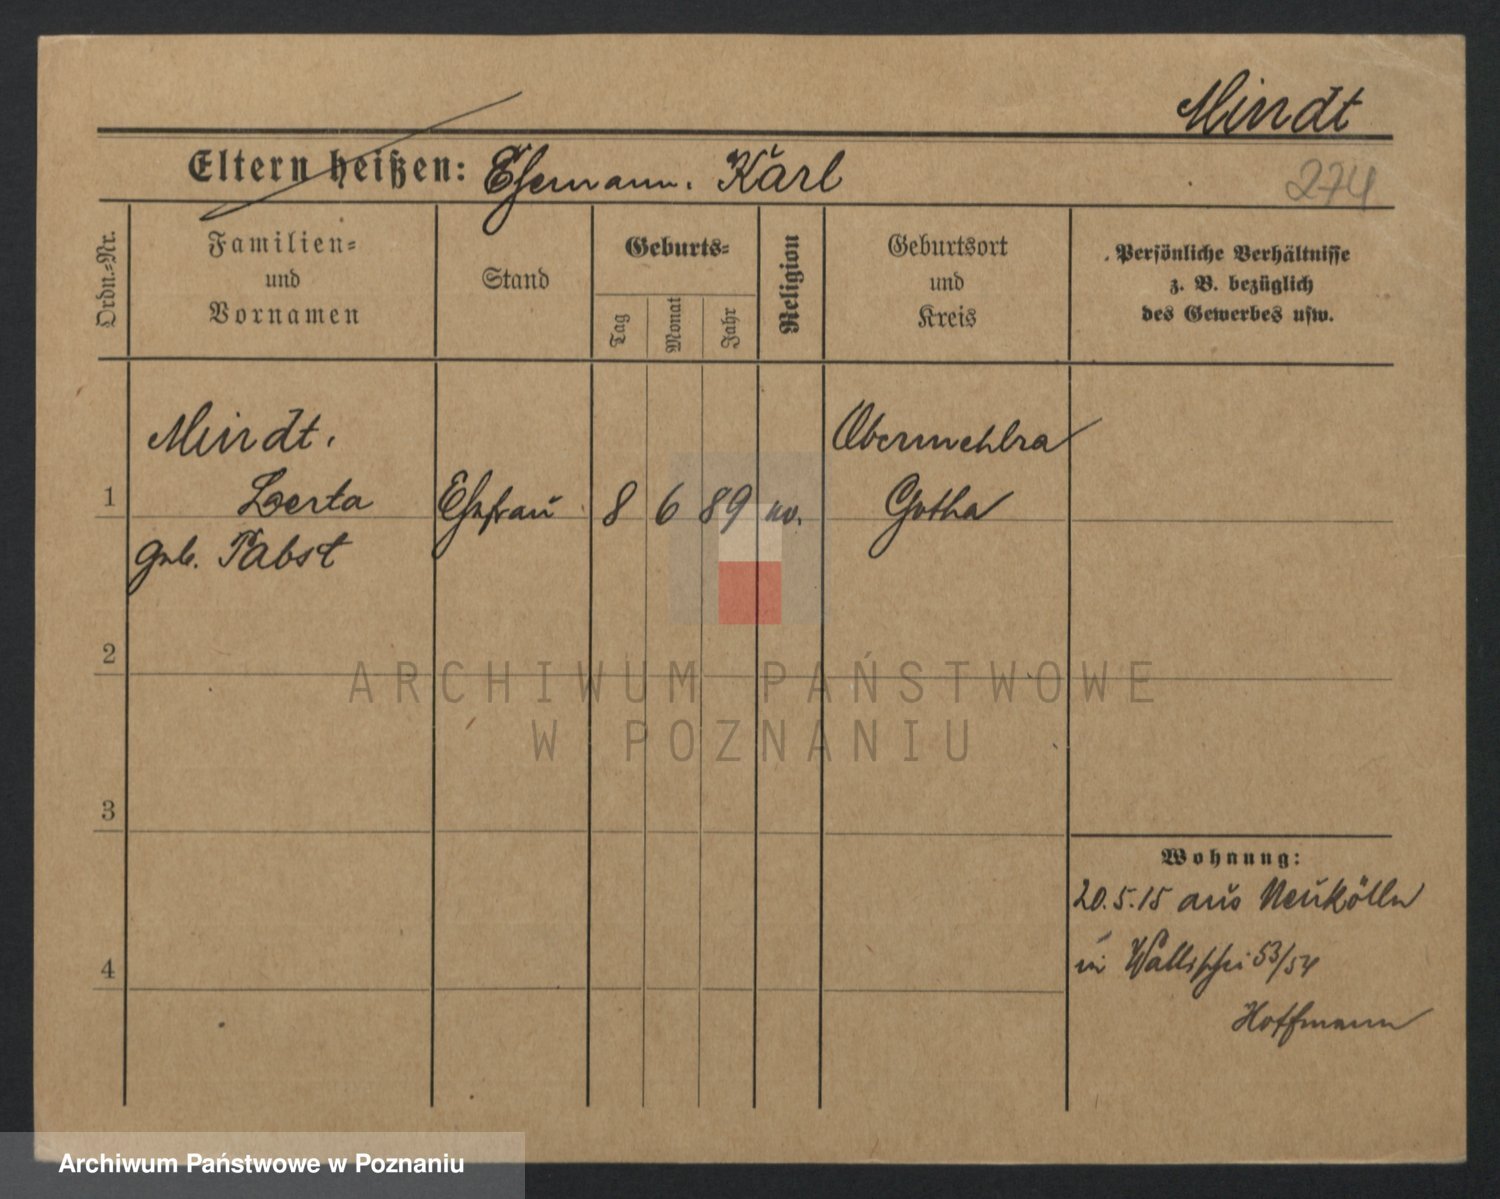 Mindt
274
Eltern heißen: Ehemann. Karl
Ordn.-Nr.
Familien-
und
Vornamen
Stand
Geburts-
Tag
Monat
Jahr
Religion
Geburtsort
und
Kreis
Persönliche Verhältnisse
z. B. bezüglich
des Gewerbes usw.
1
Mindt,
geb. Pabst
Ehefrau
8
6
89
ev.
Obermehlra
Gotha
2
3
4
Wohnung:
20.5.15 aus Neukölln
in Wallischei 53/54
Hoffmann
ARCHIWUM PAŃSTWOWE
W POZNANIU
Archiwum Państwowe w Poznaniu